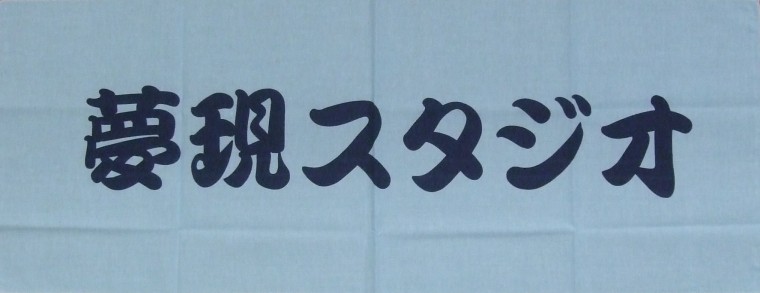 夢現スタジオ